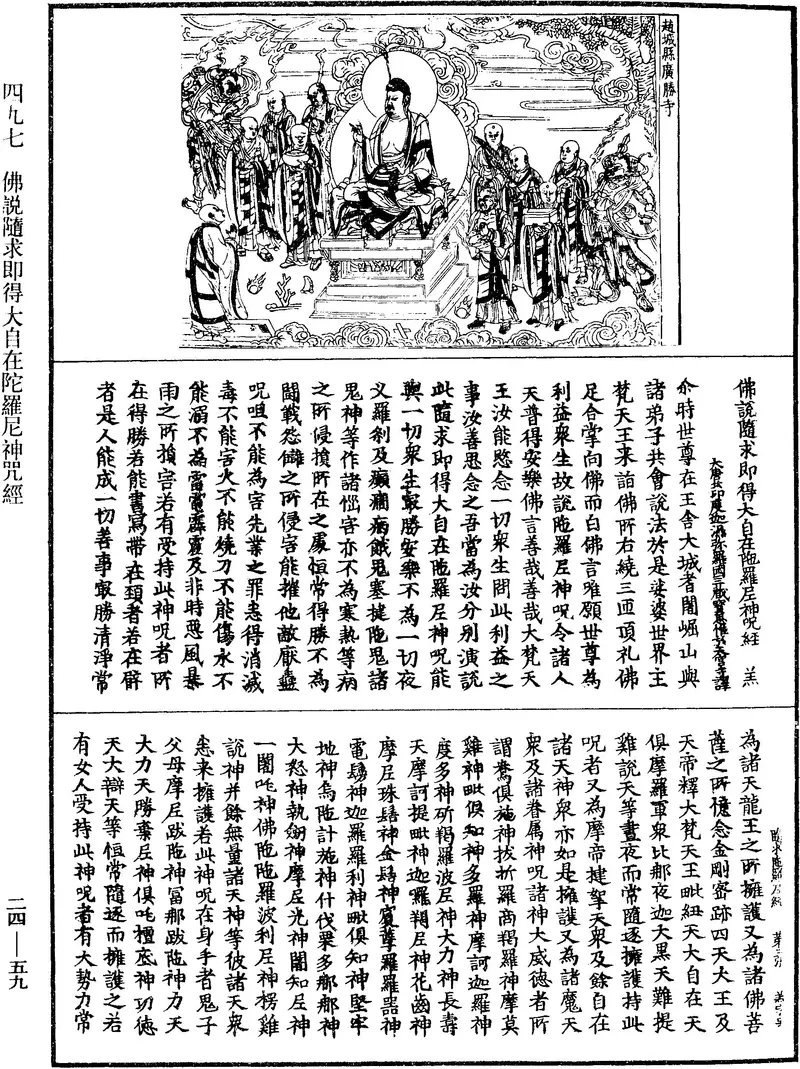 四九七　佛説隨求即得大自在陀羅尼神咒經
二四—五九
趙城縣廣勝寺
佛說隨求即得大自在陁羅尼神呪經　羔
尒時世尊在王舍大城耆闍崛山與
諸弟子共會說法於是娑婆世界主
梵天王来詣佛所右繞三匝頂礼佛
足合掌向佛而白佛言唯願世尊為
利益衆生故說陁羅尼神呪令諸人
天普得安樂佛言善哉善哉大梵天
王汝能愍念一切衆生問此利益之
事汝善思念之吾當為汝分別演說
此隨求即得大自在陁羅尼神呪能
與一切衆生冣勝安樂不為一切夜
义羅刹及癲癇病餓鬼塞揵陁鬼諸
鬼神等作諸惱害亦不為寒熱等病
之所侵損所在之處恒常得勝不為
鬪戰怨讎之所侵害能摧他敵厭蠱
呪咀不能為害先業之罪悉得消滅
毒不能害火不能燒刀不能傷水不
能溺不為雷電霹靂及非時惡風暴
雨之所損害若有受持此神呪者所
在得勝若能書寫帶在頚者若在臂
者是人能成一切善事冣勝清淨常
為諸天龍王之所擁護又為諸佛菩
薩之所憶念金剛密跡四天大王及
天帝釋大梵天王毗紐天大自在天
俱摩羅軍衆比那夜迦大黑天難提
雞說天等晝夜而常隨逐擁護持此
呪者又為摩帝揵拏天衆及餘自在
諸天神衆亦如是擁護又為諸魔天
衆及諸眷属神呪諸神大威德者所
謂鴦俱施神拔折羅商羯羅神摩莫
雞神毗俱知神多羅神摩訶迦羅神
度多神斫羯羅波尼神大力神長壽
天摩訶提毗神迦羅羯尼神花齒神
摩尼珠髻神金髻神賓蓽羅羅器神
電鬘神迦羅羅利神毗俱知神堅牢
地神烏陁計施神什伐栗多那那神
大怒神執劒神摩尼光神闍知尼神
一闍吒神佛陁陁羅波利尼神楞雞
說神并餘無量諸天神等彼諸天衆
悉来擁護若此神呪在身手者鬼子
父母摩尼跋陁神冨那跋陁神力天
大力天勝棄尼神俱吒檀底神功德
天大辯天等恒常隨逐而擁護之若
有女人受持此神呪者有大勢力常